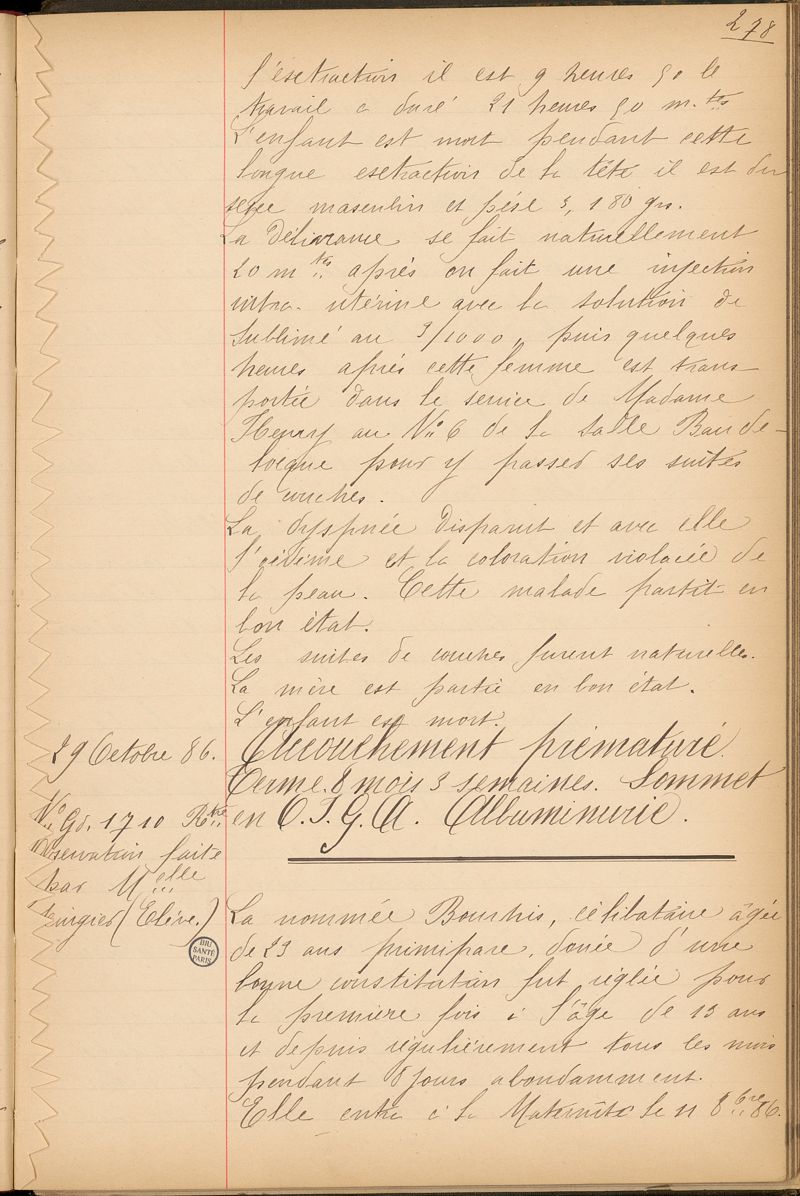 278
l'esctraction il est 9 heures 50 le
travail a duré 21 heures 50 m.tes
L'enfant est mort pendant cette
longue esctraction de la tête il est du
sexe masculin et pèse 3,180 grs.
La Délivrance se fait naturellement
20 m.tes après on fait une injection
intra-utérine avec la solution de
Sublimé au 3/1000, puis quelques
heures après cette femme est trans
portée dans le service de Madame
Henry au N° 6 de la Salle Baude-
locque pour y passer ses suites
de couches.
La dyspnée Disparut et avec elle
l'œdème et la coloration violacée de
la peau. Cette malade partit en
bon état.
Les suites de couches furent naturelles.
La mère est partie en bon état.
L'enfant est mort.
29 Octobre 86.
Accouchement prématuré.
Terme. 8 mois 3 semaines. Sommet
en O.I.G.A. Albuminurie.
N° Gd. 1710 Rtre
Observation faite
par Melle
(Elève.)
BIU
SANTÉ
PARIS
La nommée Bourhis, célibataire âgée
de 23 ans primipare, douée d'une
bonne constitution fut réglée pour
la première fois à l'âge de 13 ans
et depuis régulièrement tous les mois
pendant 8 jours abondamment.
Elle entre à la Maternité le 11 8bre 86.